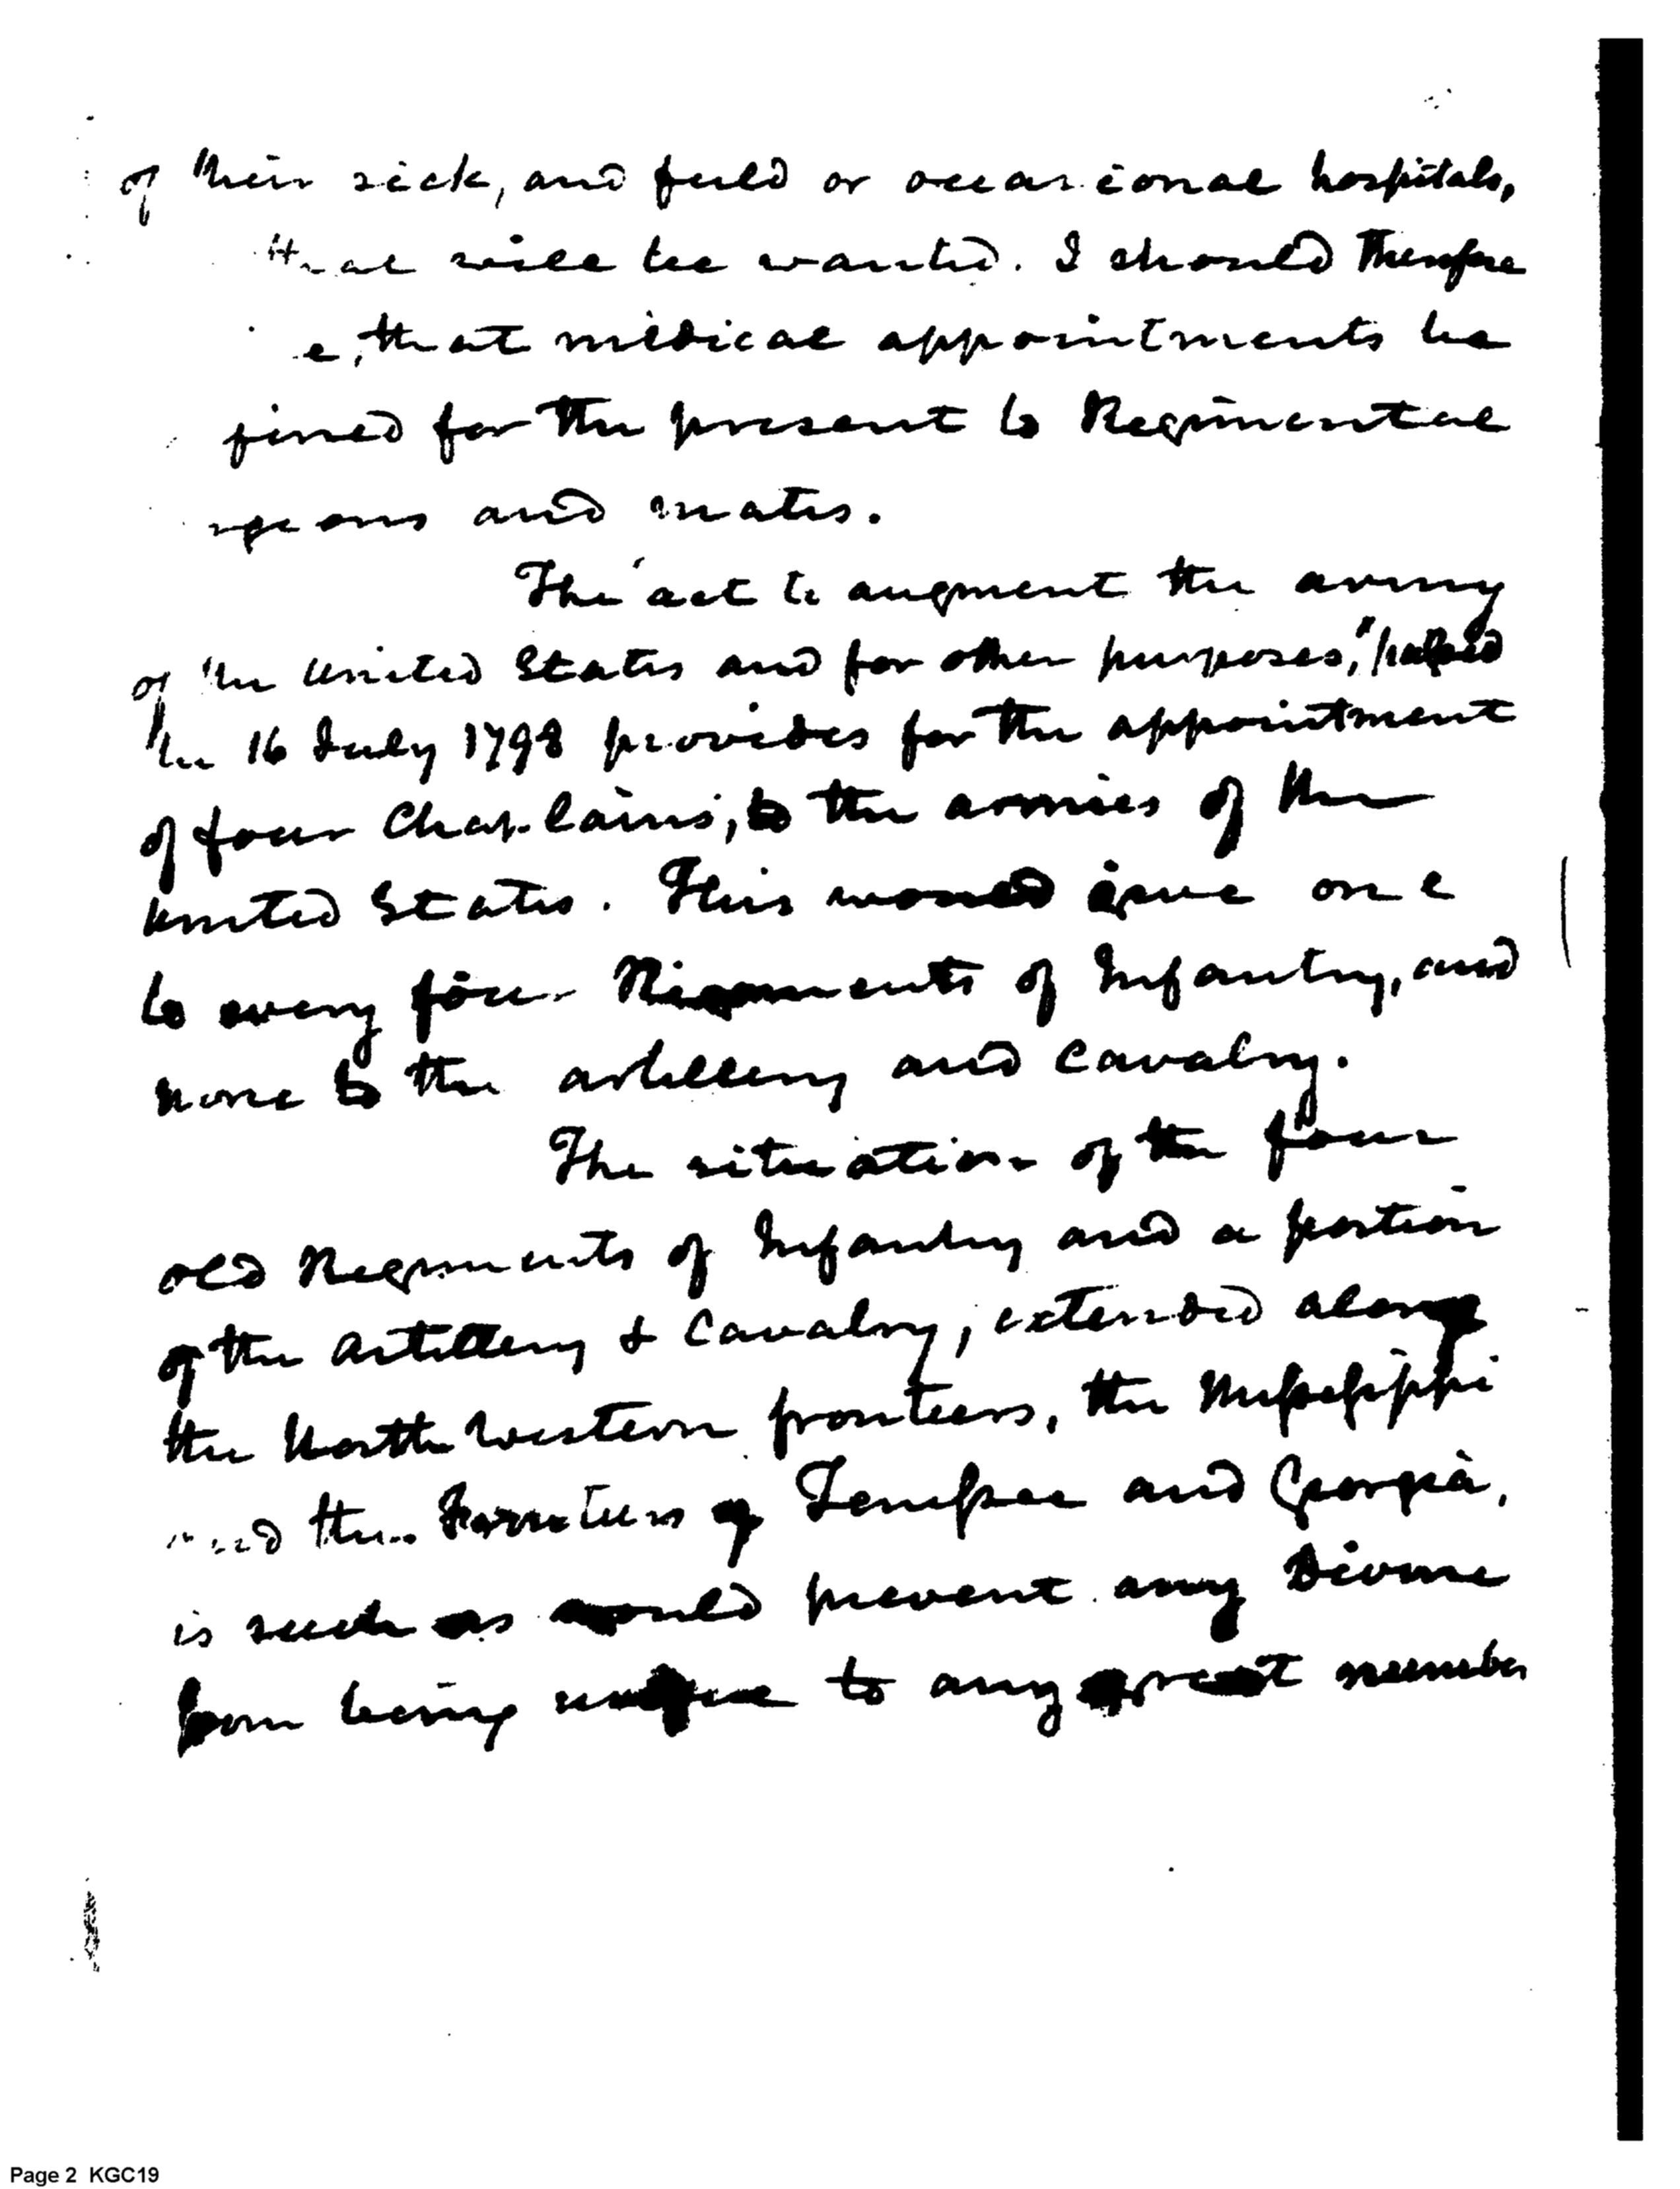 of their sick, and field or occasional hospitals,
that will be wanted. I should therefore
e, that medical appointments be
fined for the present to Regimental
rgeons and mates.
The act to augment the army
of the United States and for other purposes," passed
the 16 July 1798 provides for the appointment
of four Chaplains, to the armies of the
United States. This would give one
to every four Regiments of Infantry, and
none to the artillery and cavalry.
The situation of the four
old Regiments of Infantry and a portion
of the Artillery & Cavalry, extended along
the North Western frontiers, the Missisippi
and the frontiers of Tenessee and Georgia,
is such as would prevent any Divine
from being to any great number
Page 2 KGC19